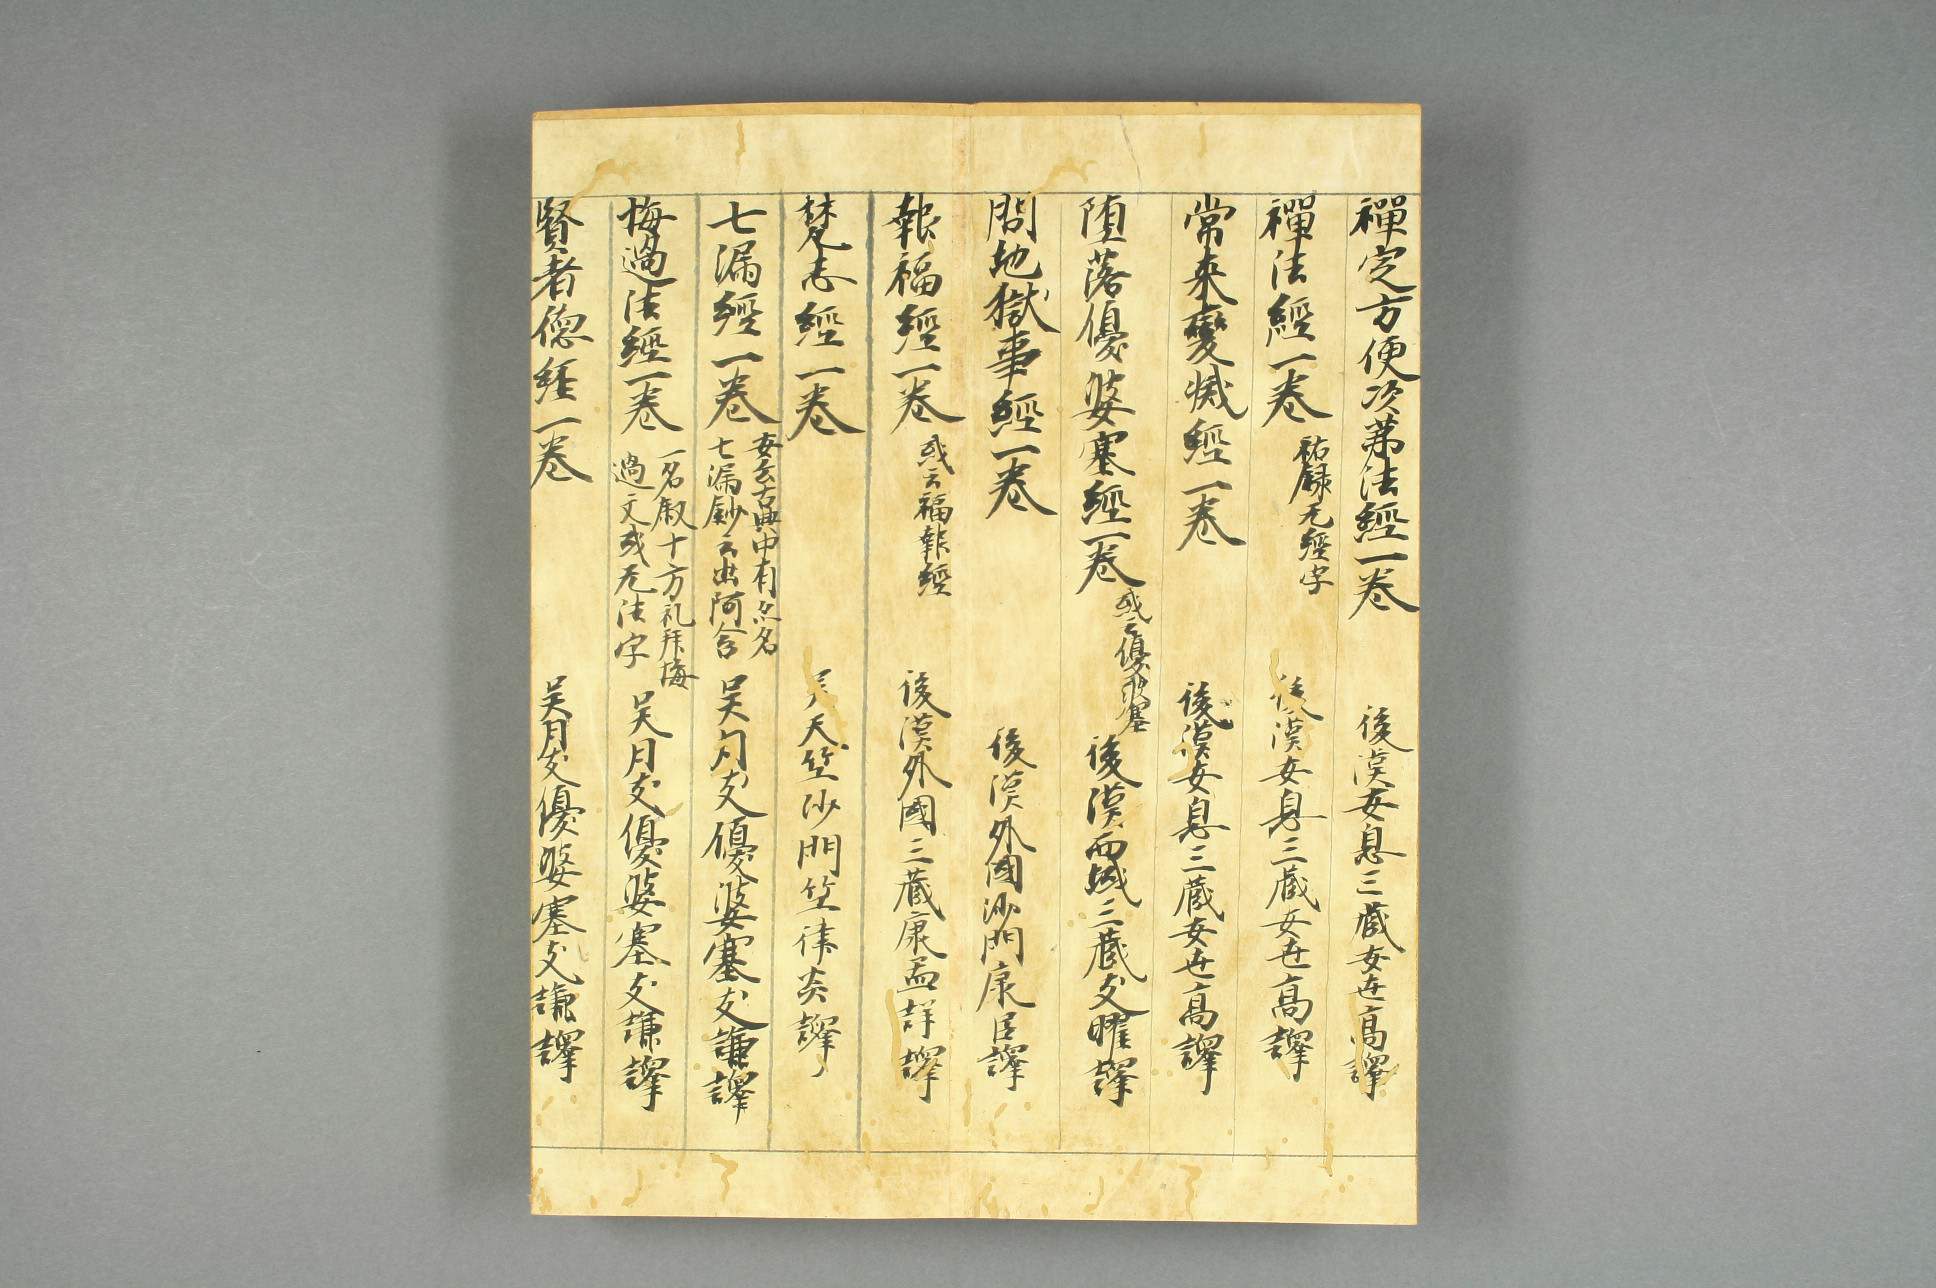 禪定方便次第法經一卷 後漢安息三藏安世高譯
禪法經一卷 祐録无經字 後漢安息三藏安世高譯
當來變滅經一卷 後漢安息三藏安世高譯
墮落優婆塞經一卷 或云優婆塞 後漢西域三藏支曜譯
問地獄事經一卷 後漢外國沙門康臣譯
報福經一卷 或云福報經 後漢外國三藏康孟詳譯
梵志經一卷 吴天竺沙門竺律炎譯
七漏經一卷 安云古典中有此名
七漏鈔云出阿含 吴月支優婆塞支謙譯
悔過法經一卷 一名叙十方礼拜悔
過文或无法字 吴月支優婆塞支謙譯
賢者德經一卷 吴月支優婆塞支謙譯